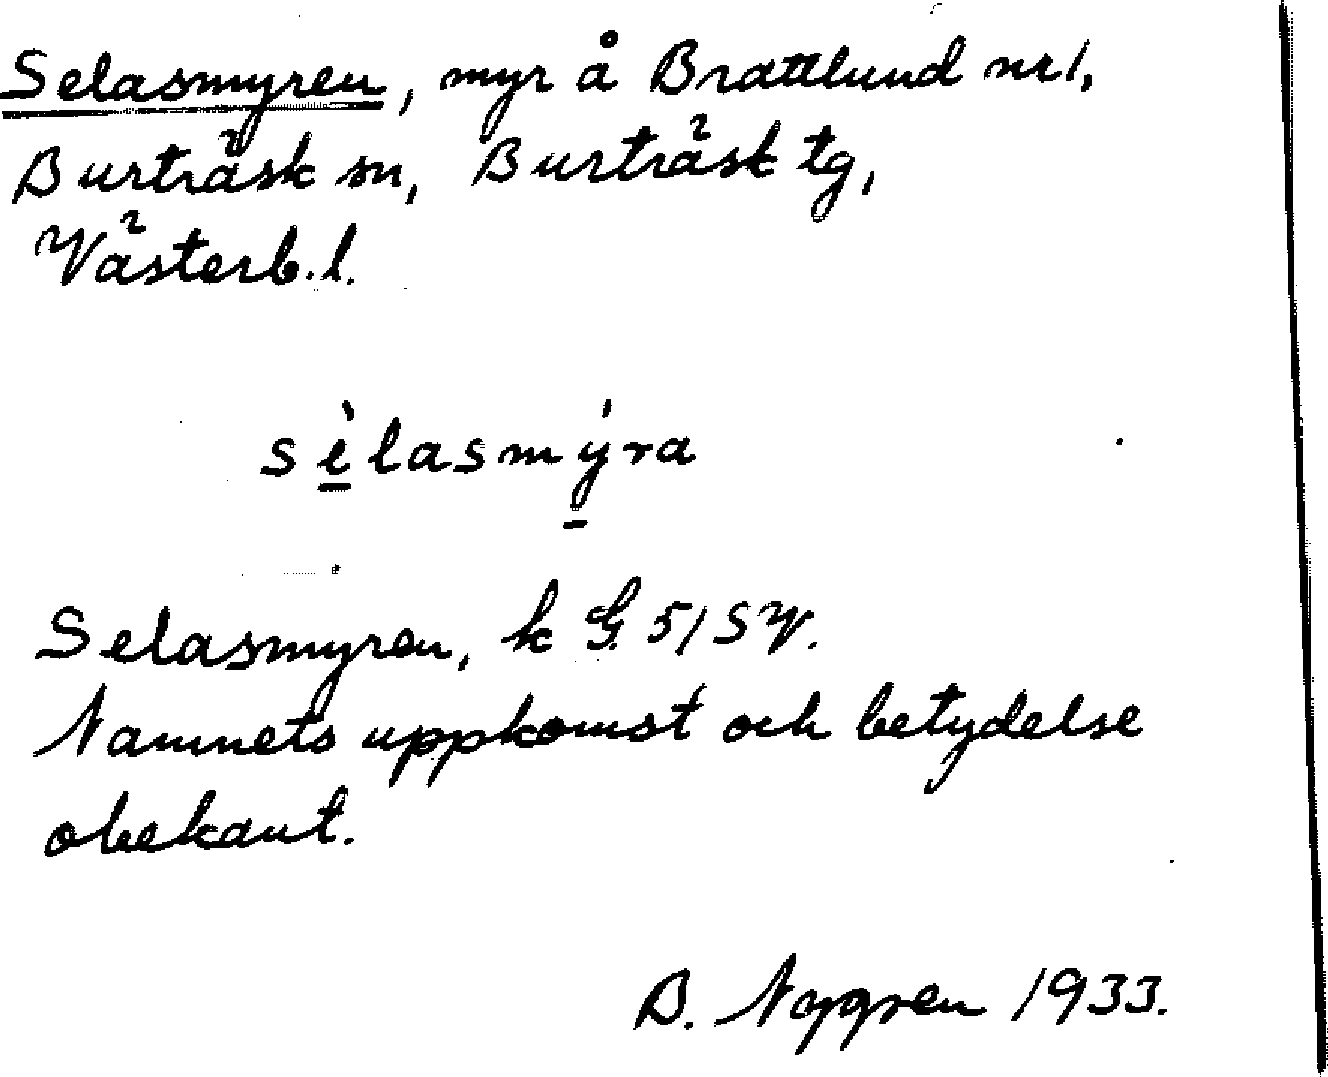 Selasmyren, myr å Brattlund nr 1,
Burträsk sn, Burträsk tg,
Västerb. l.
sèlasmýra
Selasmyren, k G. 51 SV.
Namnets uppkomst och betydelse
obekant.
B. Nygren 1933.